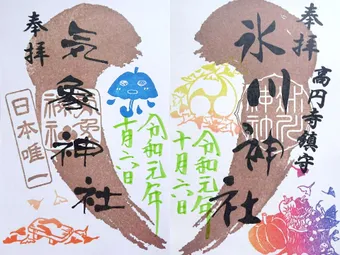 奉拝
高円寺鎮守
氷川神社
令和元年
十月六日
奉拝
気象神社
日本唯一
令和元年
十月六日